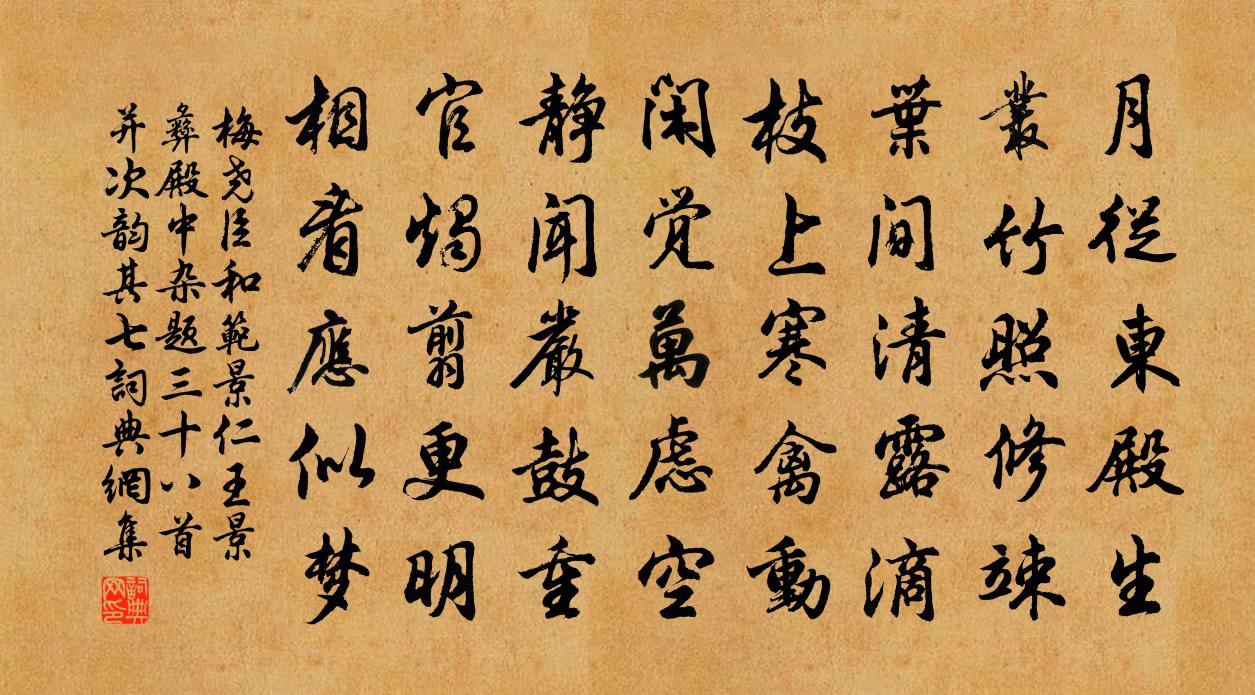 月從東殿生
叢竹照修竦
葉間清露滴
枝上寒禽動
閑覚萬慮空
靜聞嚴鼓重
官燭翦更明
相看應似梦
梅尧臣和範景仁王景
彝殿中杂题三十八首
并次韵其七詞典網集
詞典网印